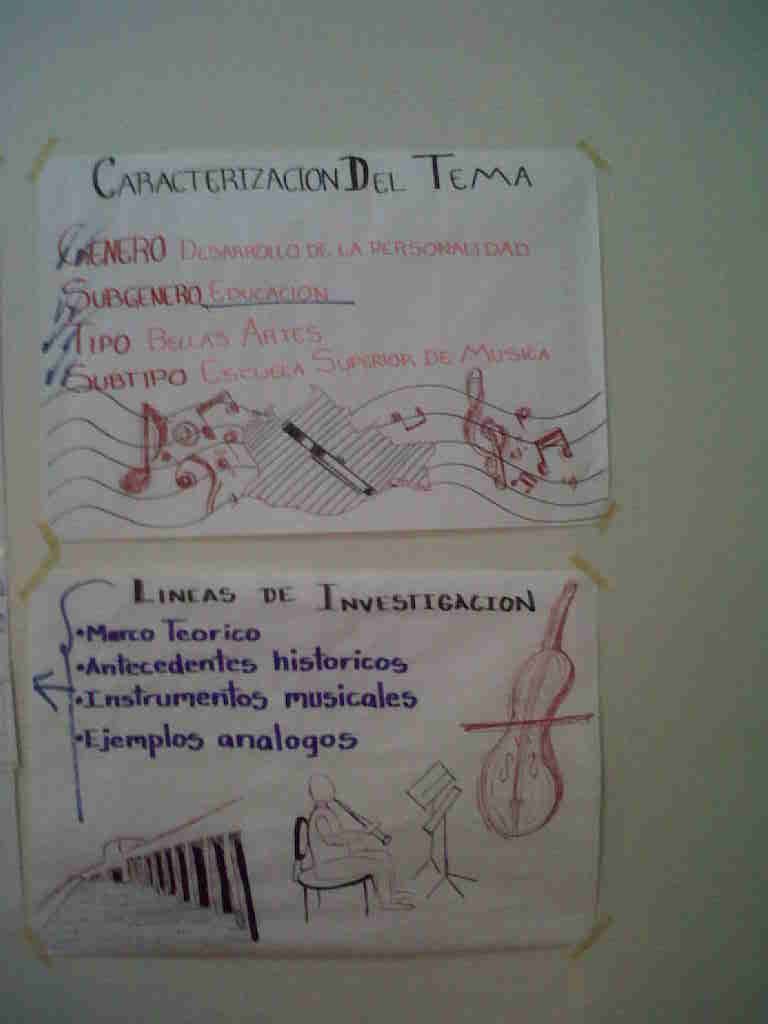 CARACTERIZACION DEL TEMA
GENERO DESARROLLO DE LA PERSONALIDAD
SUBGENERO EDUCACION
TIPO BELLAS ARTES
SUBTIPO ESCUELA SUPERIOR DE MUSICA
LINEAS DE INVESTIGACION
•Marco Teorico
•Antecedentes historicos
•Instrumentos musicales
•Ejemplos analogos